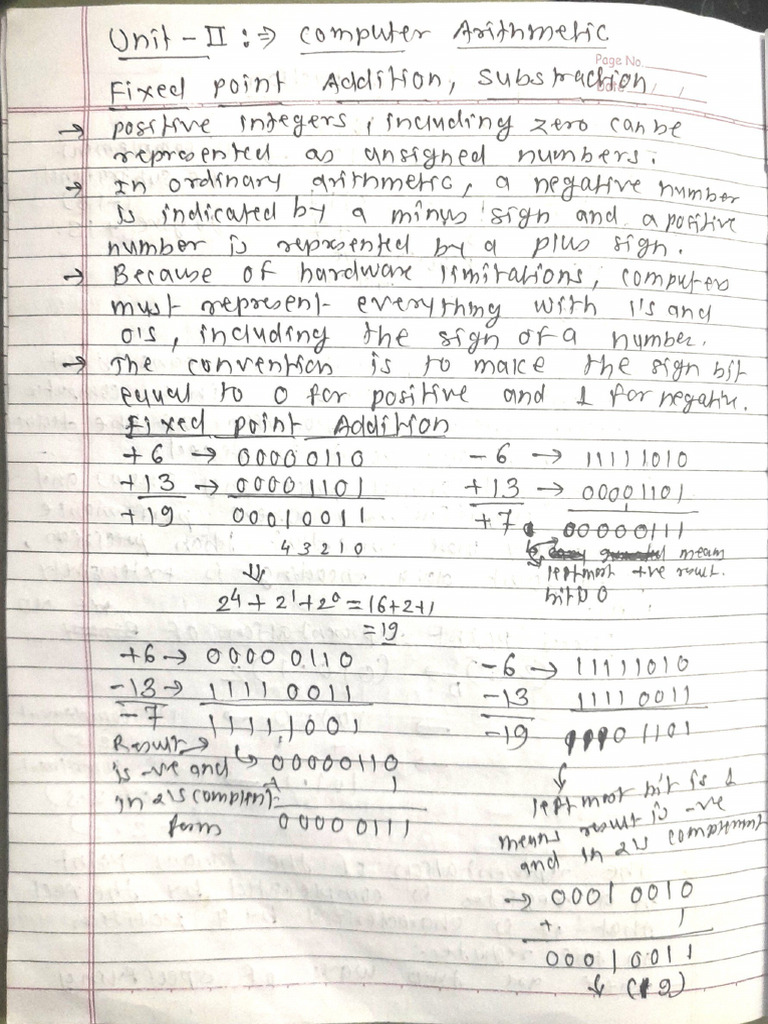 Unit - II :⇒ Computer Arithmetic
Page No.
Date / /
Fixed point Addition, Substraction
→ positive integers, including zero can be
represented as unsigned numbers.
→ In ordinary arithmetic, a negative number
is indicated by a minus sign and a positive
number is represented by a plus sign.
→ Because of hardware limitations, computers
must represent everything with 1's and
0's, including the sign of a number.
→ The convention is to make the sign bit
equal to 0 for positive and 1 for negative.
Fixed point Addition
+6 → 00000110
+13 → 00001101
+19 00010011
4 3 2 1 0
⇓
2⁴ + 2¹ + 2⁰ = 16+2+1
= 19
-6 → 11111010
+13 → 00001101
+7 00000111
mean
leftmost +ve result.
bit is 0
+6 → 00000110
-13 → 11110011
-7 11111001
Result →
is -ve and ↳ 00000110
in 2's complent + 1
form 00000111
-6 → 11111010
-13 11110011
-19 11101101
↓
leftmost bit is 1
means result is -ve
and in 2's compliment
→ 00010010
+ 1
00010011
↓ (19)